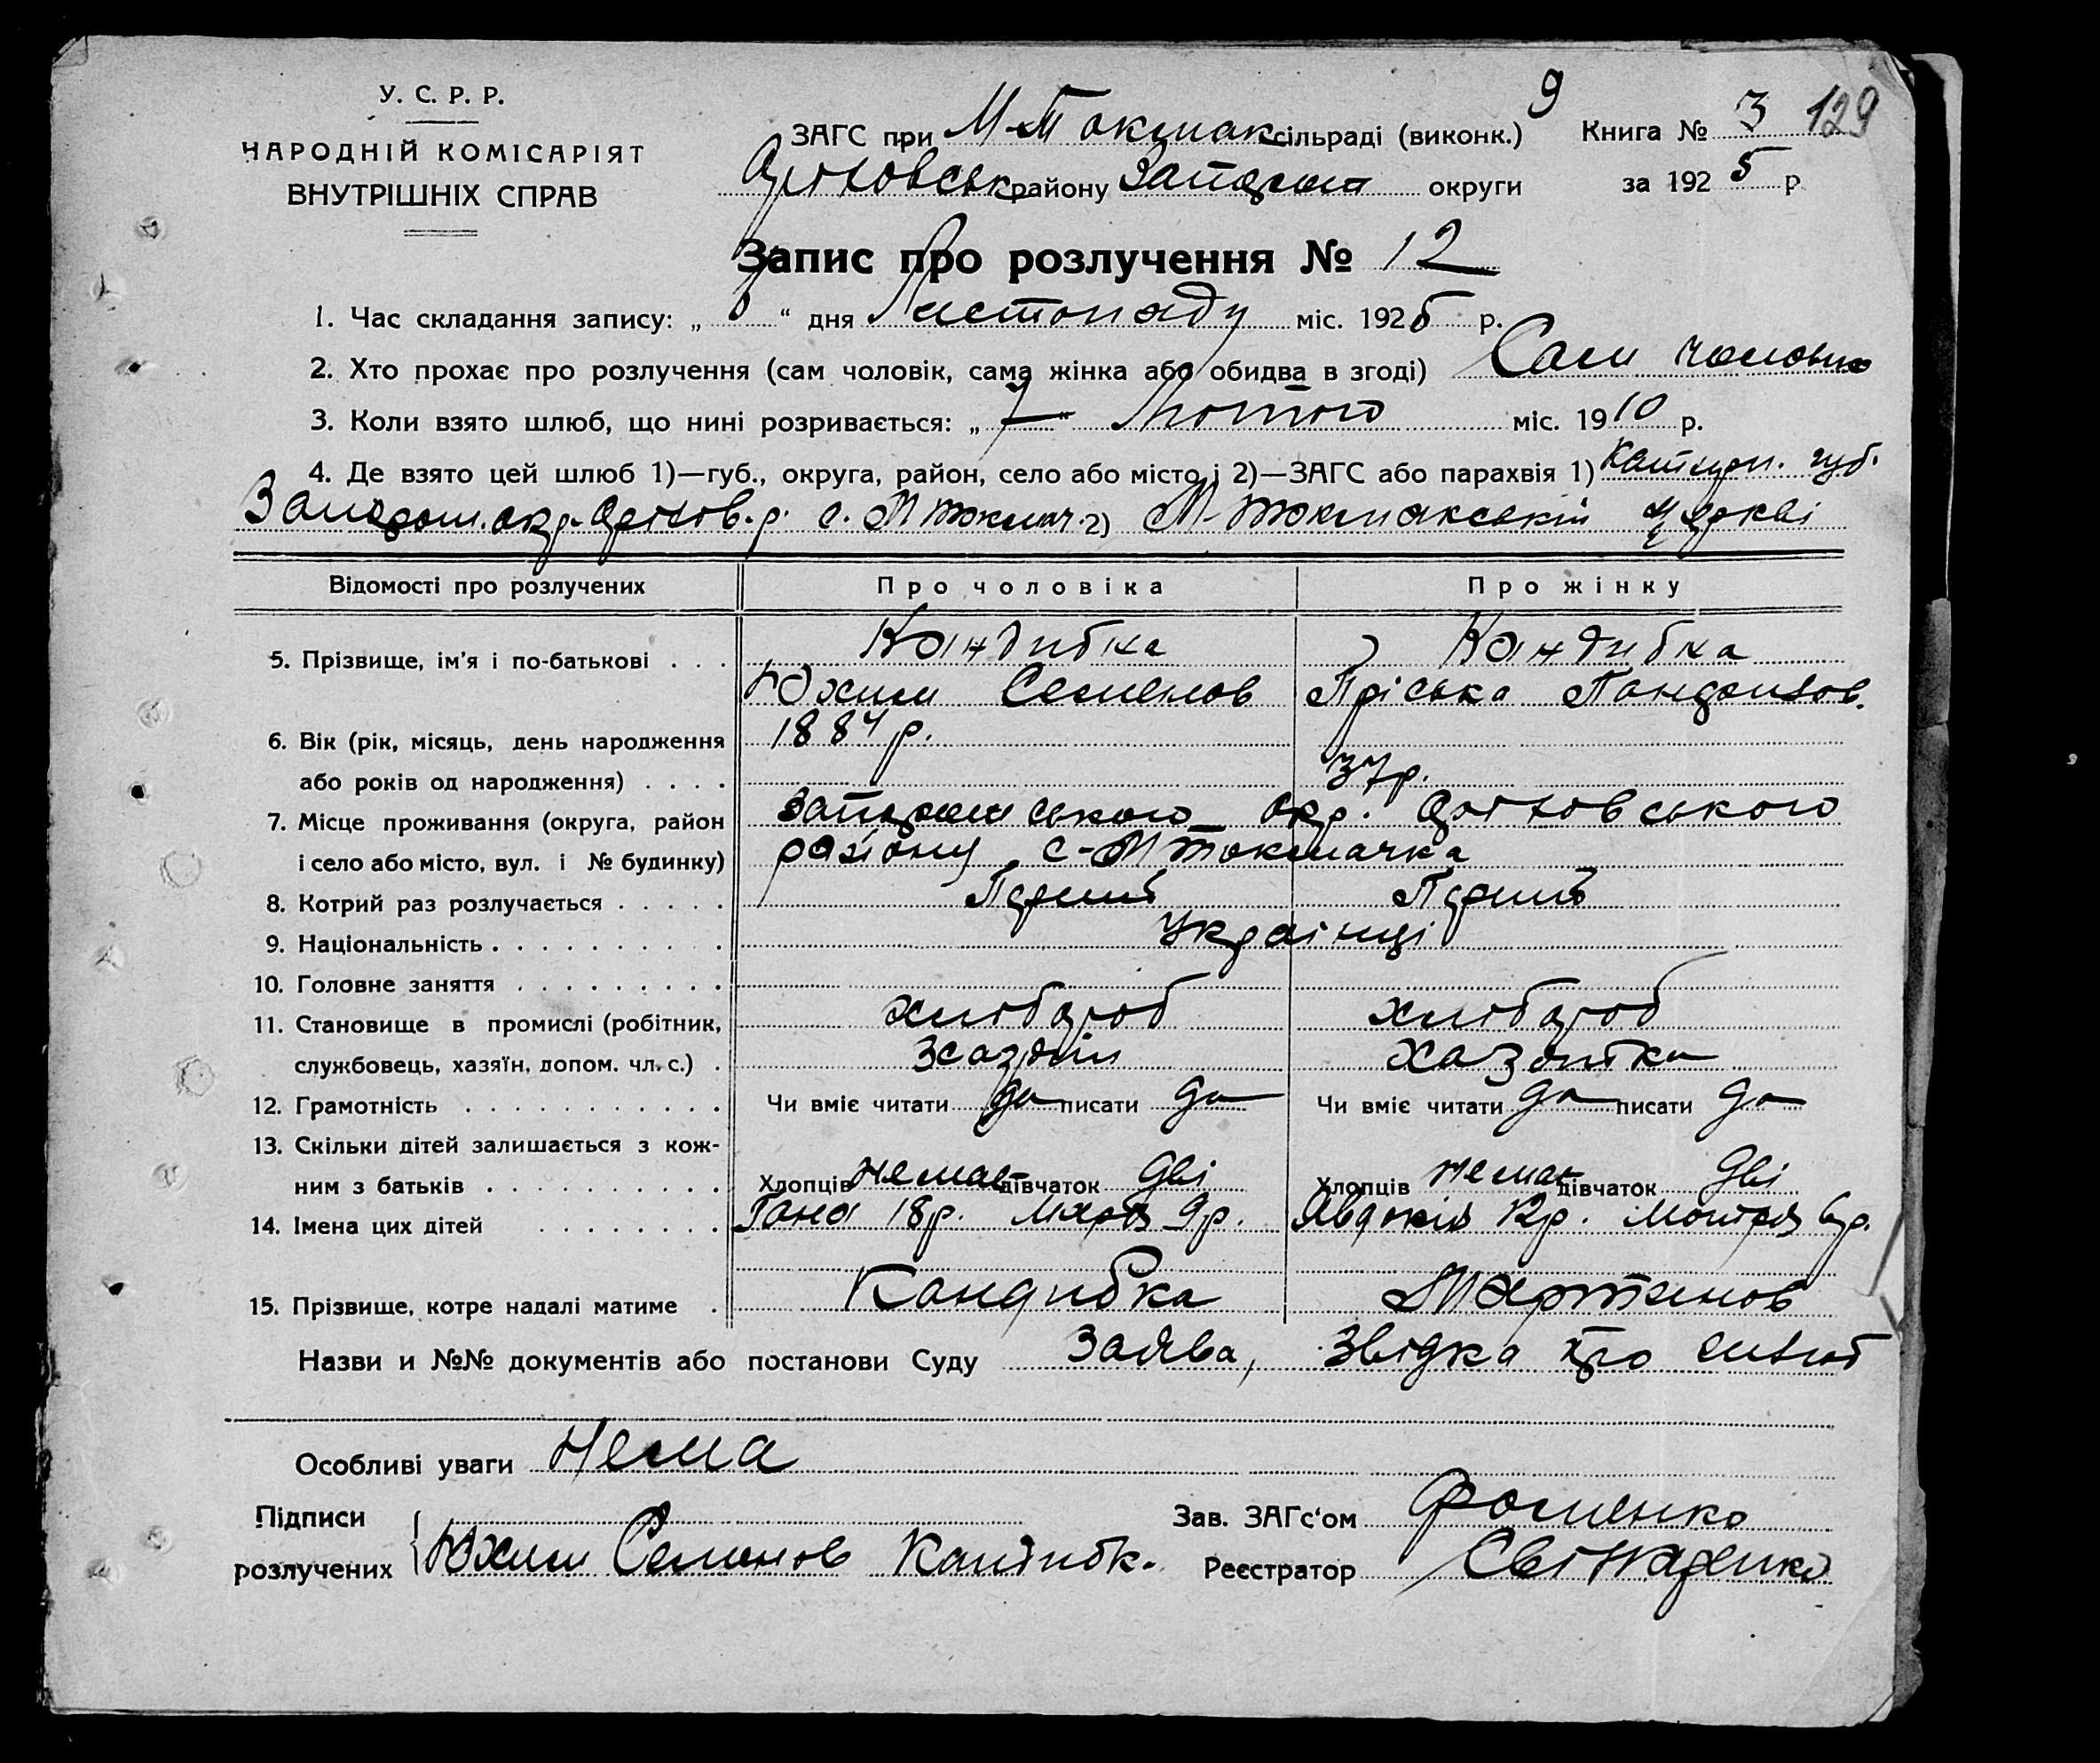 У. С. Р. Р.
НАРОДНІЙ КОМІСАРІЯТ
ВНУТРІШНІХ СПРАВ
9
ЗАГС при М-Токмак сільраді (виконк.) Книга № 3 129
Оріховськ району Запорож округи за 1925 р
Запис про розлучення № 12
1. Час складання запису: „ “ дня Листопаду міс. 1925 р.
2. Хто прохає про розлучення (сам чоловік, сама жінка або обидва в згоді) Сам чоловік
3. Коли взято шлюб, що нині розривається: „7“ Лютого міс. 1910 р.
4. Де взято цей шлюб 1)—губ., округа, район, село або місто і 2)—ЗАГС або парахвія 1) губ.
Запорож. окр. Оріхов. р. с. М Токмач. 2) М-Токмакській церкві
Відомості про розлучених Про чоловіка Про жінку
5. Прізвище, ім'я і по-батькові . . . Кандибка Кандибка
Юхим Семенов Пріська
6. Вік (рік, місяць, день народження 1884 р.
або років од народження) . . . . 37 р.
7. Місце проживання (округа, район Запорожського окр. Оріховського
і село або місто, вул. і № будинку) району с-М Токмачка
8. Котрий раз розлучається . . . . . Перший Перший
9. Національність . . . . . . . . . . Українці
10. Головне заняття . . . . . . . . .
11. Становище в промислі (робітник, хлібороб хлібороб
службовець, хазяїн, допом. чл. с.) . Хазяїн Хазяйка
12. Грамотність . . . . . . . . . . . Чи вміє читати да писати да Чи вміє читати да писати да
13. Скільки дітей залишається з кож-
ним з батьків . . . . . . . . . . Хлопців немає дівчаток Дві Хлопців немає дівчаток Дві
14. Імена цих дітей . . . . . . . . Гана 18 р. Марія 9 р. Явдокія 12 р. Мотря 6 р.
15. Прізвище, котре надалі матиме . Кандибка Мартинов
Назви и №№ документів або постанови Суду Заява, Звідка про шлюб
Особливі уваги Нема
Підписи Зав. ЗАГс'ом Фоменко
розлучених Юхим Семенов Кандибк. Реєстратор